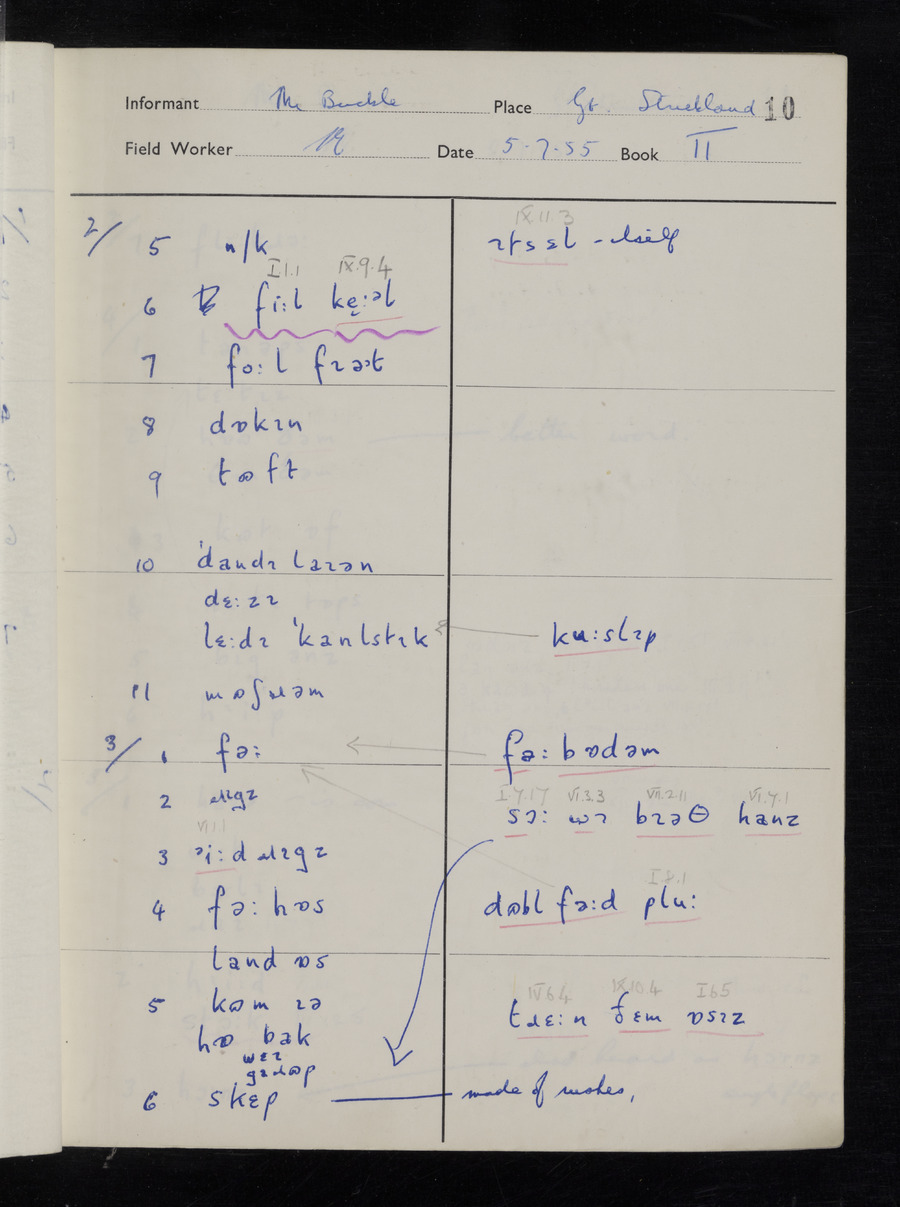 Informant The Buckle Place Gt. Strickland 10
Field Worker Date 5.7.55 Book II
2/ 5 n/k
IX.11.3
ɪtsɛl - itself
I.1.1 IX.9.4
6 fi:l kẹ:əl
7 fo:l fɹəɪt
8 dɒkɪn
9 tɷft
10 ˈdandɪ laɪən
dɛ:zɪ
lɛ:dɪ ˈkanlstɪk
ku:slɪp
11 mɷʃɹəm
3/ 1 fə:
fə: bɒdəm
2 ɹɪgz
I.7.17 VI.3.3 VII.2.11 VI.7.1
sɔ: bɹəθ hanz
VII.1
3 ɹɪgz
4 fə: hɒs
I.8.1
dɷbl fə:d plu:
land ɒs
5 kɷm ɪə
IV.6.4 IX.10.4 I.6.5
tɹɛ:n ðɛm ɒsɪz
bak
6 skɛp
made of rushes,